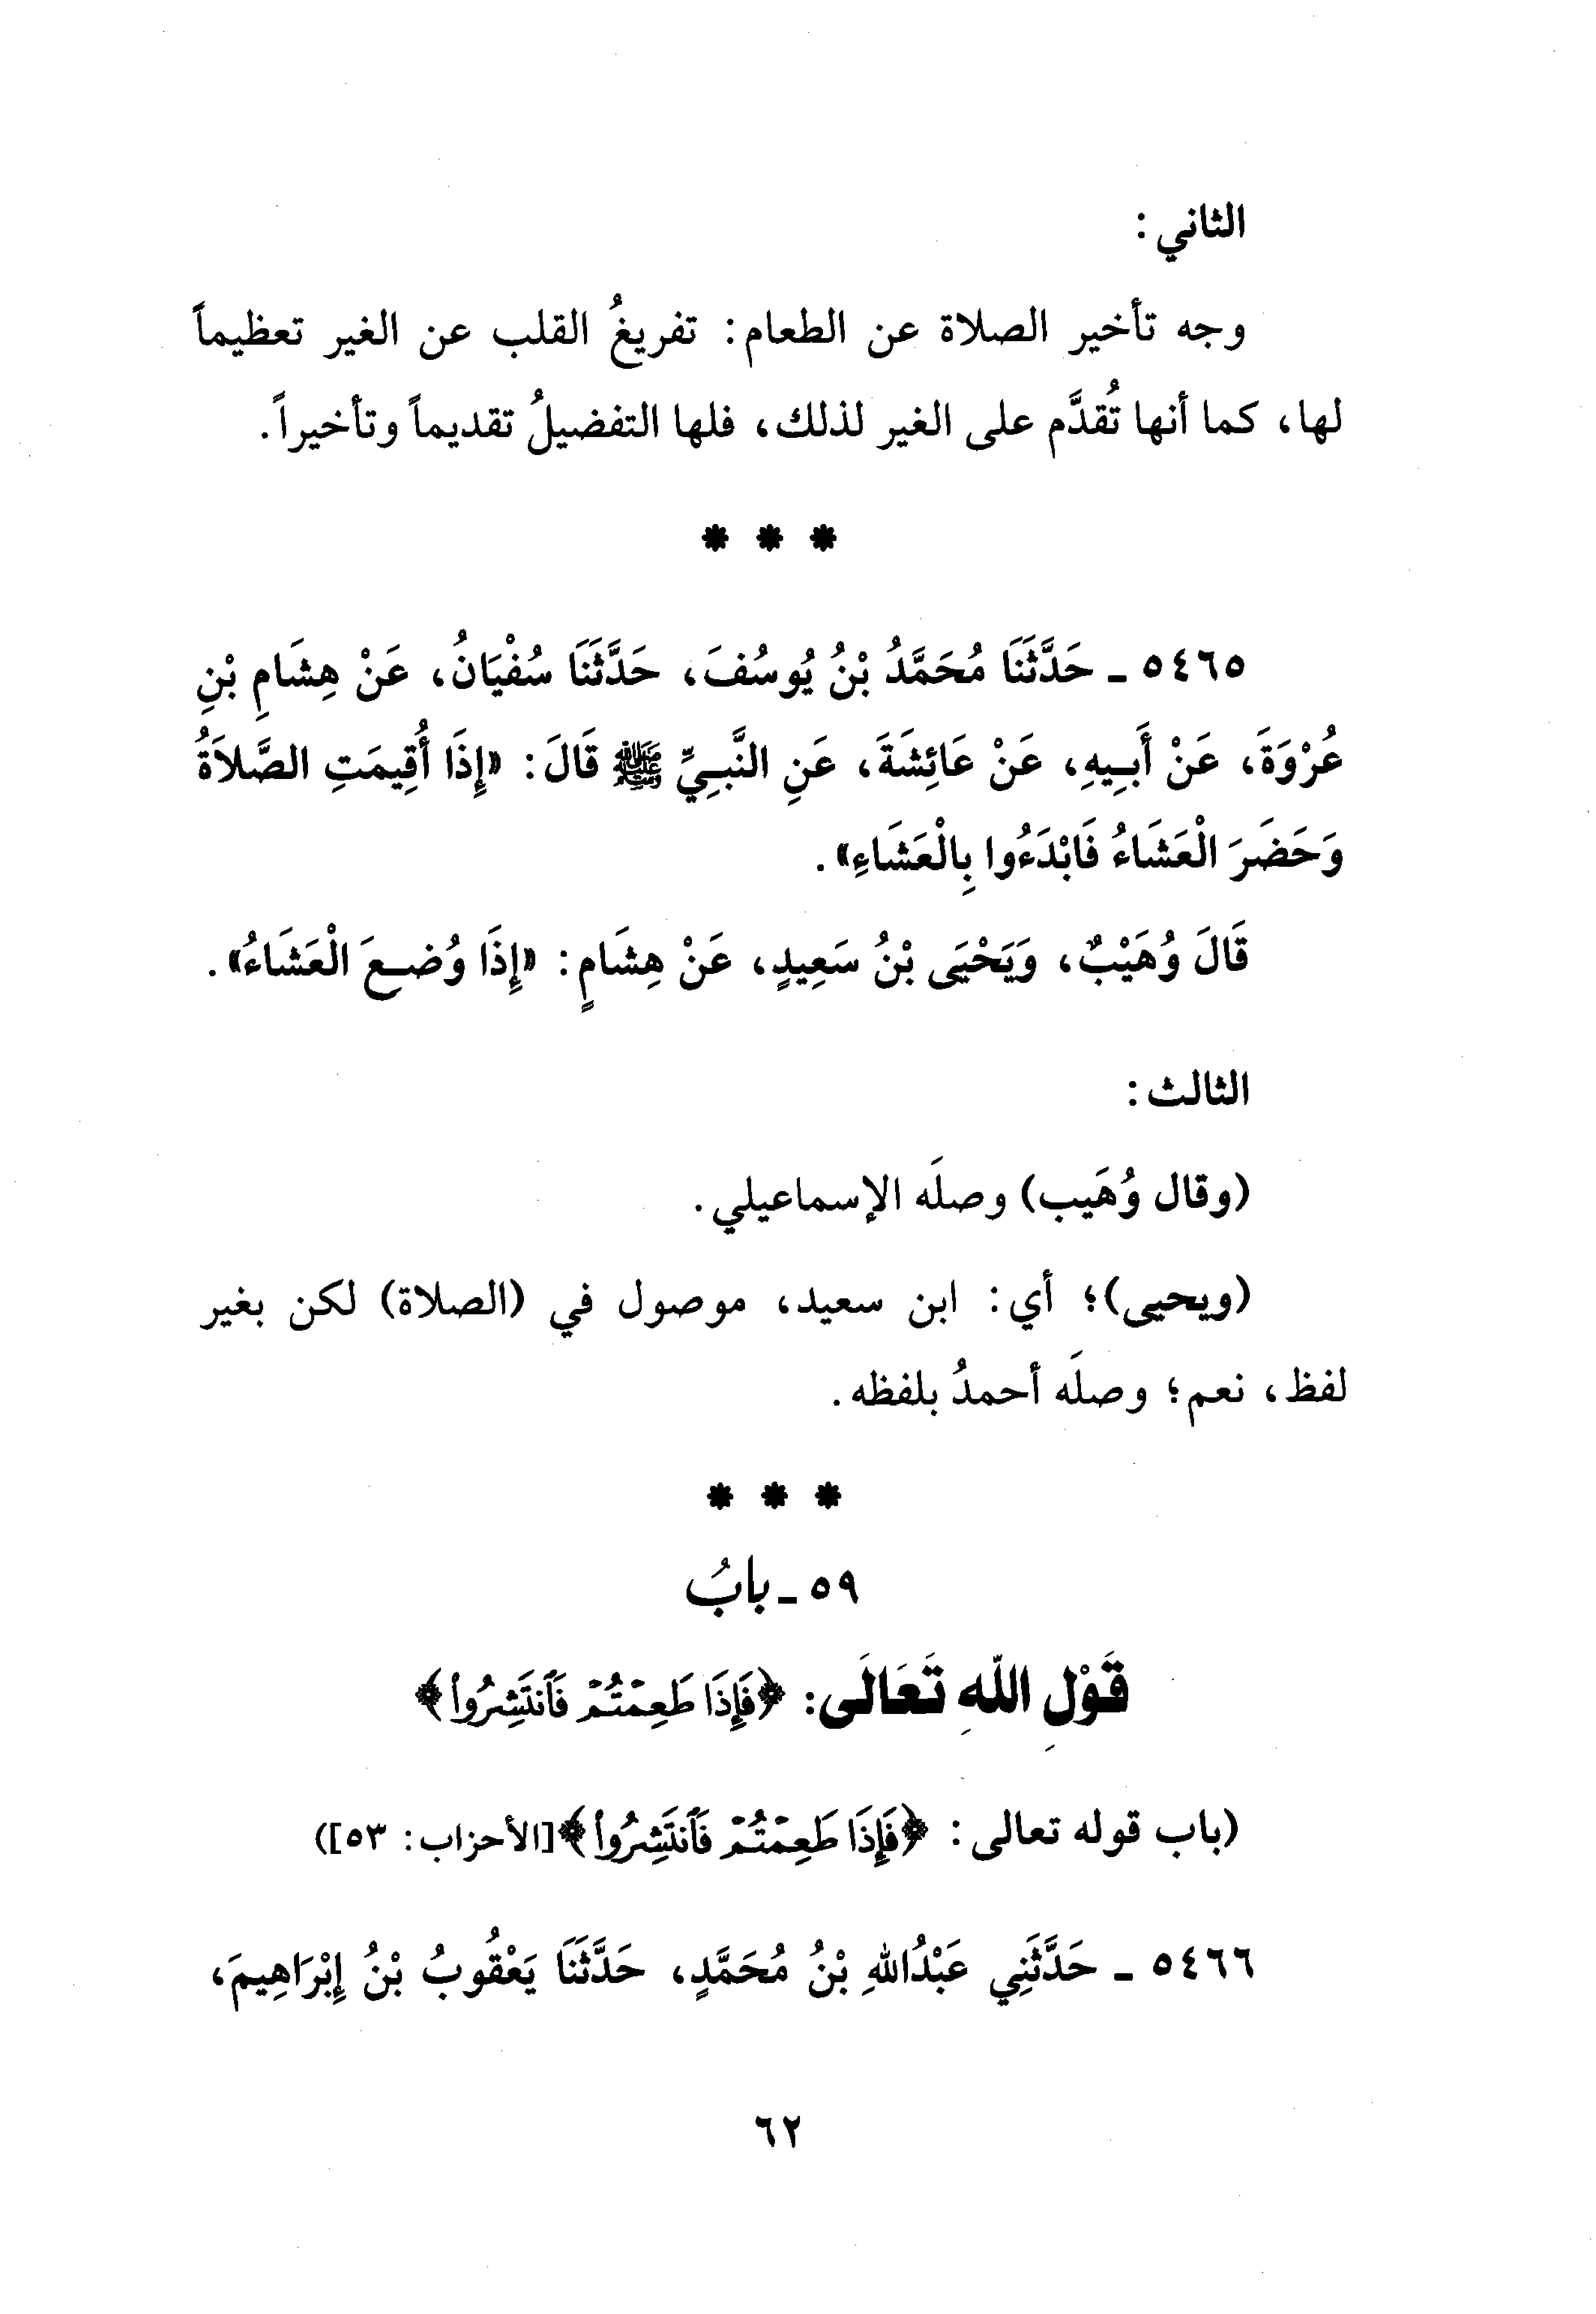 الثاني:
وجه تأخير الصلاة عن الطعام: تفريغُ القلب عن الغير تعظيماً
لها، كما أنها تُقدَّم على الغير لذلك، فلها التفضيلُ تقديماً وتأخيراً.
* * *
٥٤٦٥ ـ حَدَّثَنَا مُحَمَّدُ بْنُ يُوسُفَ، حَدَّثَنَا سُفْيَانُ، عَنْ هِشَامِ بْنِ
عُرْوَةَ، عَنْ أَبِيهِ، عَنْ عَائِشَةَ، عَنِ النَّبِيِّ ﷺ قَالَ: «إِذَا أُقِيمَتِ الصَّلاَةُ
وَحَضَرَ الْعَشَاءُ فَابْدَءُوا بِالْعَشَاءِ».
قَالَ وُهَيْبٌ، وَيَحْيَى بْنُ سَعِيدٍ، عَنْ هِشَامٍ: «إِذَا وُضِعَ الْعَشَاءُ».
الثالث:
(وقال وُهَيب) وصلَه الإسماعيلي.
(ويحيى)؛ أي: ابن سعيد، موصول في (الصلاة) لكن بغير
لفظ، نعم؛ وصلَه أحمدُ بلفظه.
* * *
٥٩ ـ بابُ
قَوْلِ اللَّهِ تَعَالَى: ﴿فَإِذَا طَعِمْتُمْ فَٱنتَشِرُواْ﴾
(باب قوله تعالى: ﴿فَإِذَا طَعِمْتُمْ فَٱنتَشِرُواْ﴾[الأحزاب: ٥٣])
٥٤٦٦ ـ حَدَّثَنِي عَبْدُاللهِ بْنُ مُحَمَّدٍ، حَدَّثَنَا يَعْقُوبُ بْنُ إِبْرَاهِيمَ،
٦٢